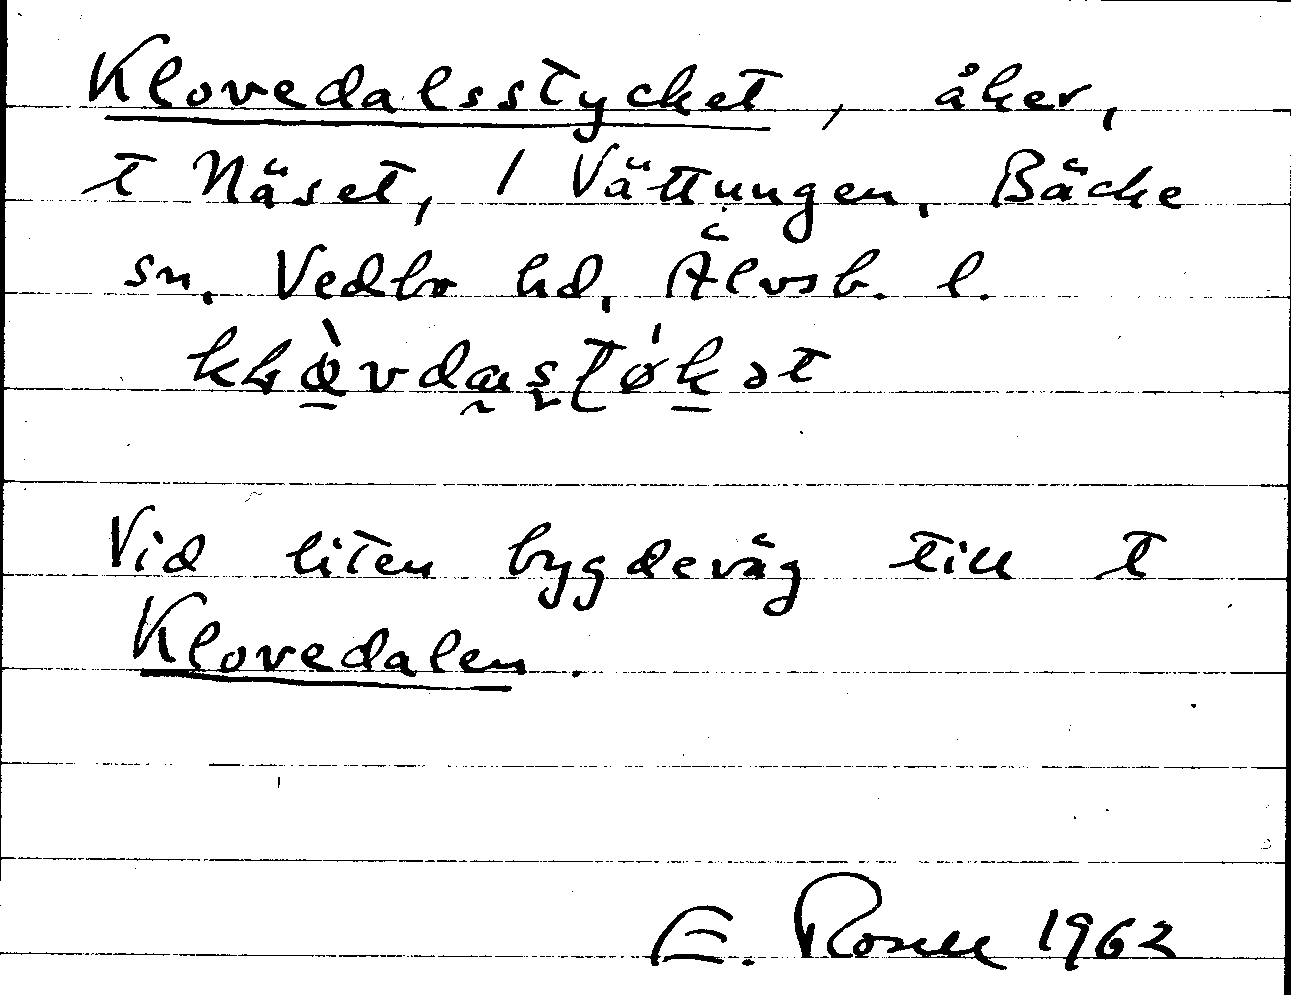 Klovedalsstycket, åker,
t Näset, 1 Vättungen, Bäcke
sn, Vedbo hd, Älvsb. l.
Vid liten bygdeväg till t
Klovedalen.
E. Rosell 1962